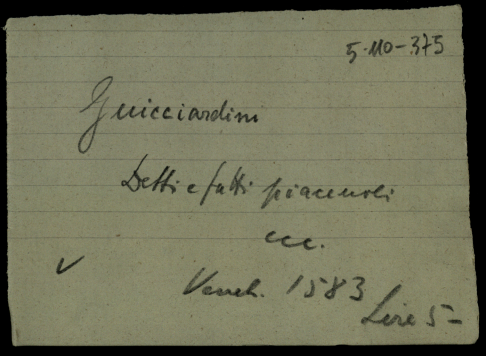 5-110-375
Guicciardini
Detti e fatti piacevoli
ecc.
Venet. 1583
Lire 5-